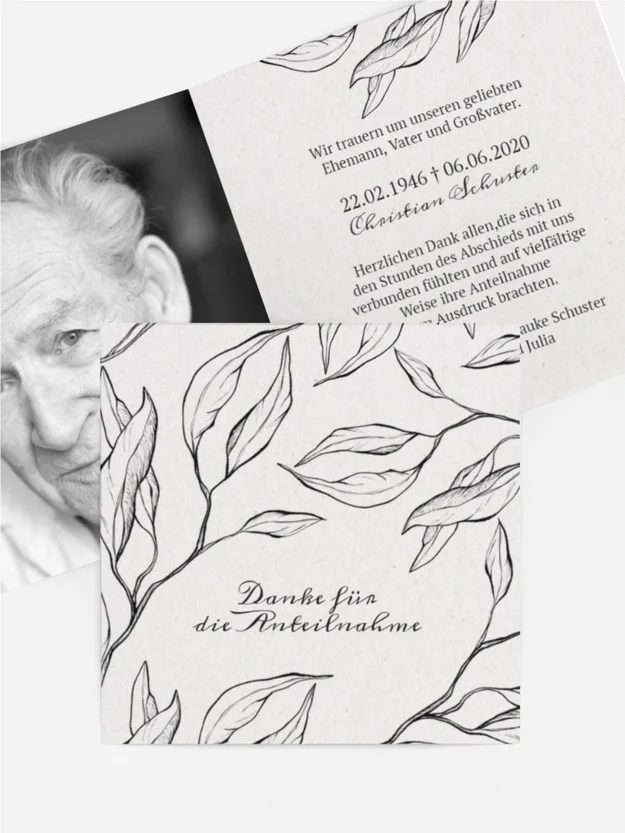 Wir trauern um unseren geliebten
Ehemann, Vater und Großvater.
22.02.1946 † 06.06.2020
Christian Schuster
Herzlichen Dank allen,die sich in
den Stunden des Abschieds mit uns
verbunden fühlten und auf vielfältige
Weise ihre Anteilnahme
Ausdruck brachten.
Schuster
Julia
Danke für
die Anteilnahme